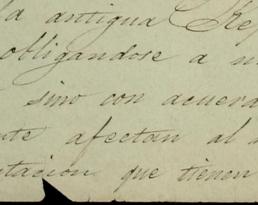 la antigua Rep
obligandose a
sino con acuerd
nte afectan al
tacion que tienen